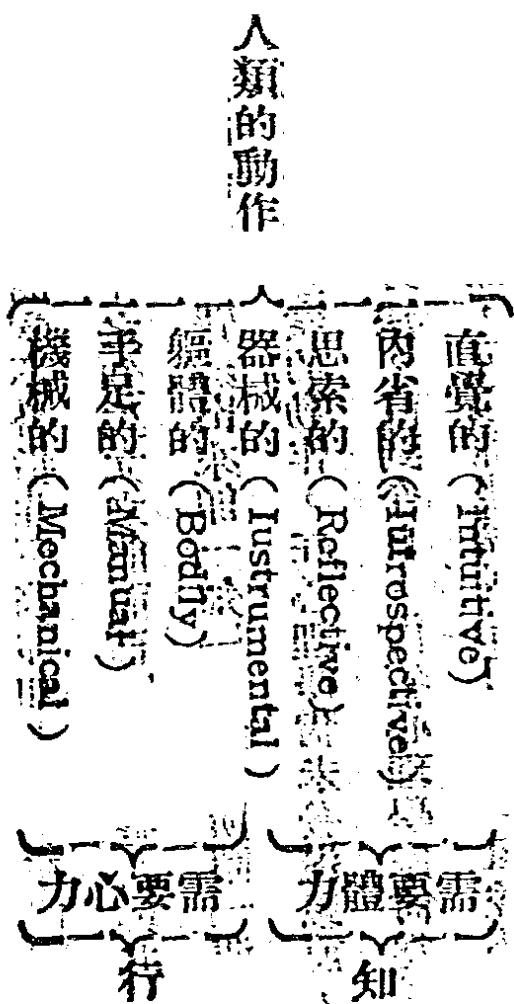 人類的動作
直覺的(Intuitive)
內省的(Introspective)
思索的(Reflective)
器械的(Iustrumental)
軀體的(Bodily)
手足的(Manual)
機械的(Mechanical)
需要體力
需要心力
知
行